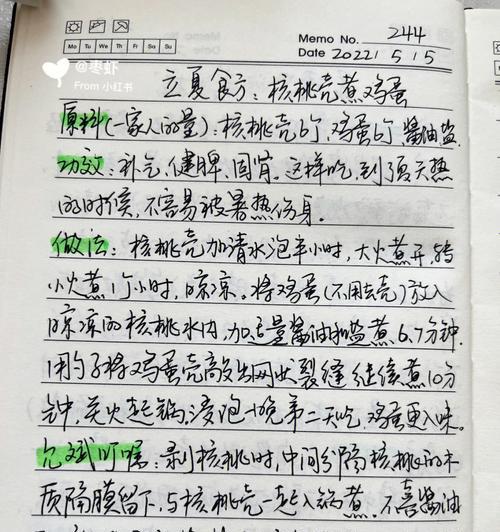 Memo No. 244
Mo Tu We Th Fr Sa Su
Date 2022 / 5 / 5
@枣虾
From 小红书
立夏食方：核桃壳煮鸡蛋
原料(一家人的量)：核桃壳6个，鸡蛋6个，酱油盐.
功效：补气，健脾，固肾。这样吃，到夏天热
的时侯，不容易被暑热伤身。
做法：核桃壳加清水泡半小时，大火煮开，转
小火煮1个小时，晾凉。将鸡蛋(不用去壳)放入
晾凉的核桃水内，加适量酱油和盐煮6.7分钟.
用勺子将鸡蛋壳敲出网状裂缝继续煮10分
钟，关火起锅，浸泡一晚第二天吃，鸡蛋更入味。
允斌叮嘱：剥核桃时，中间分隔核桃的木
质隔膜留下，与核桃壳一起入锅煮。不喜酱油